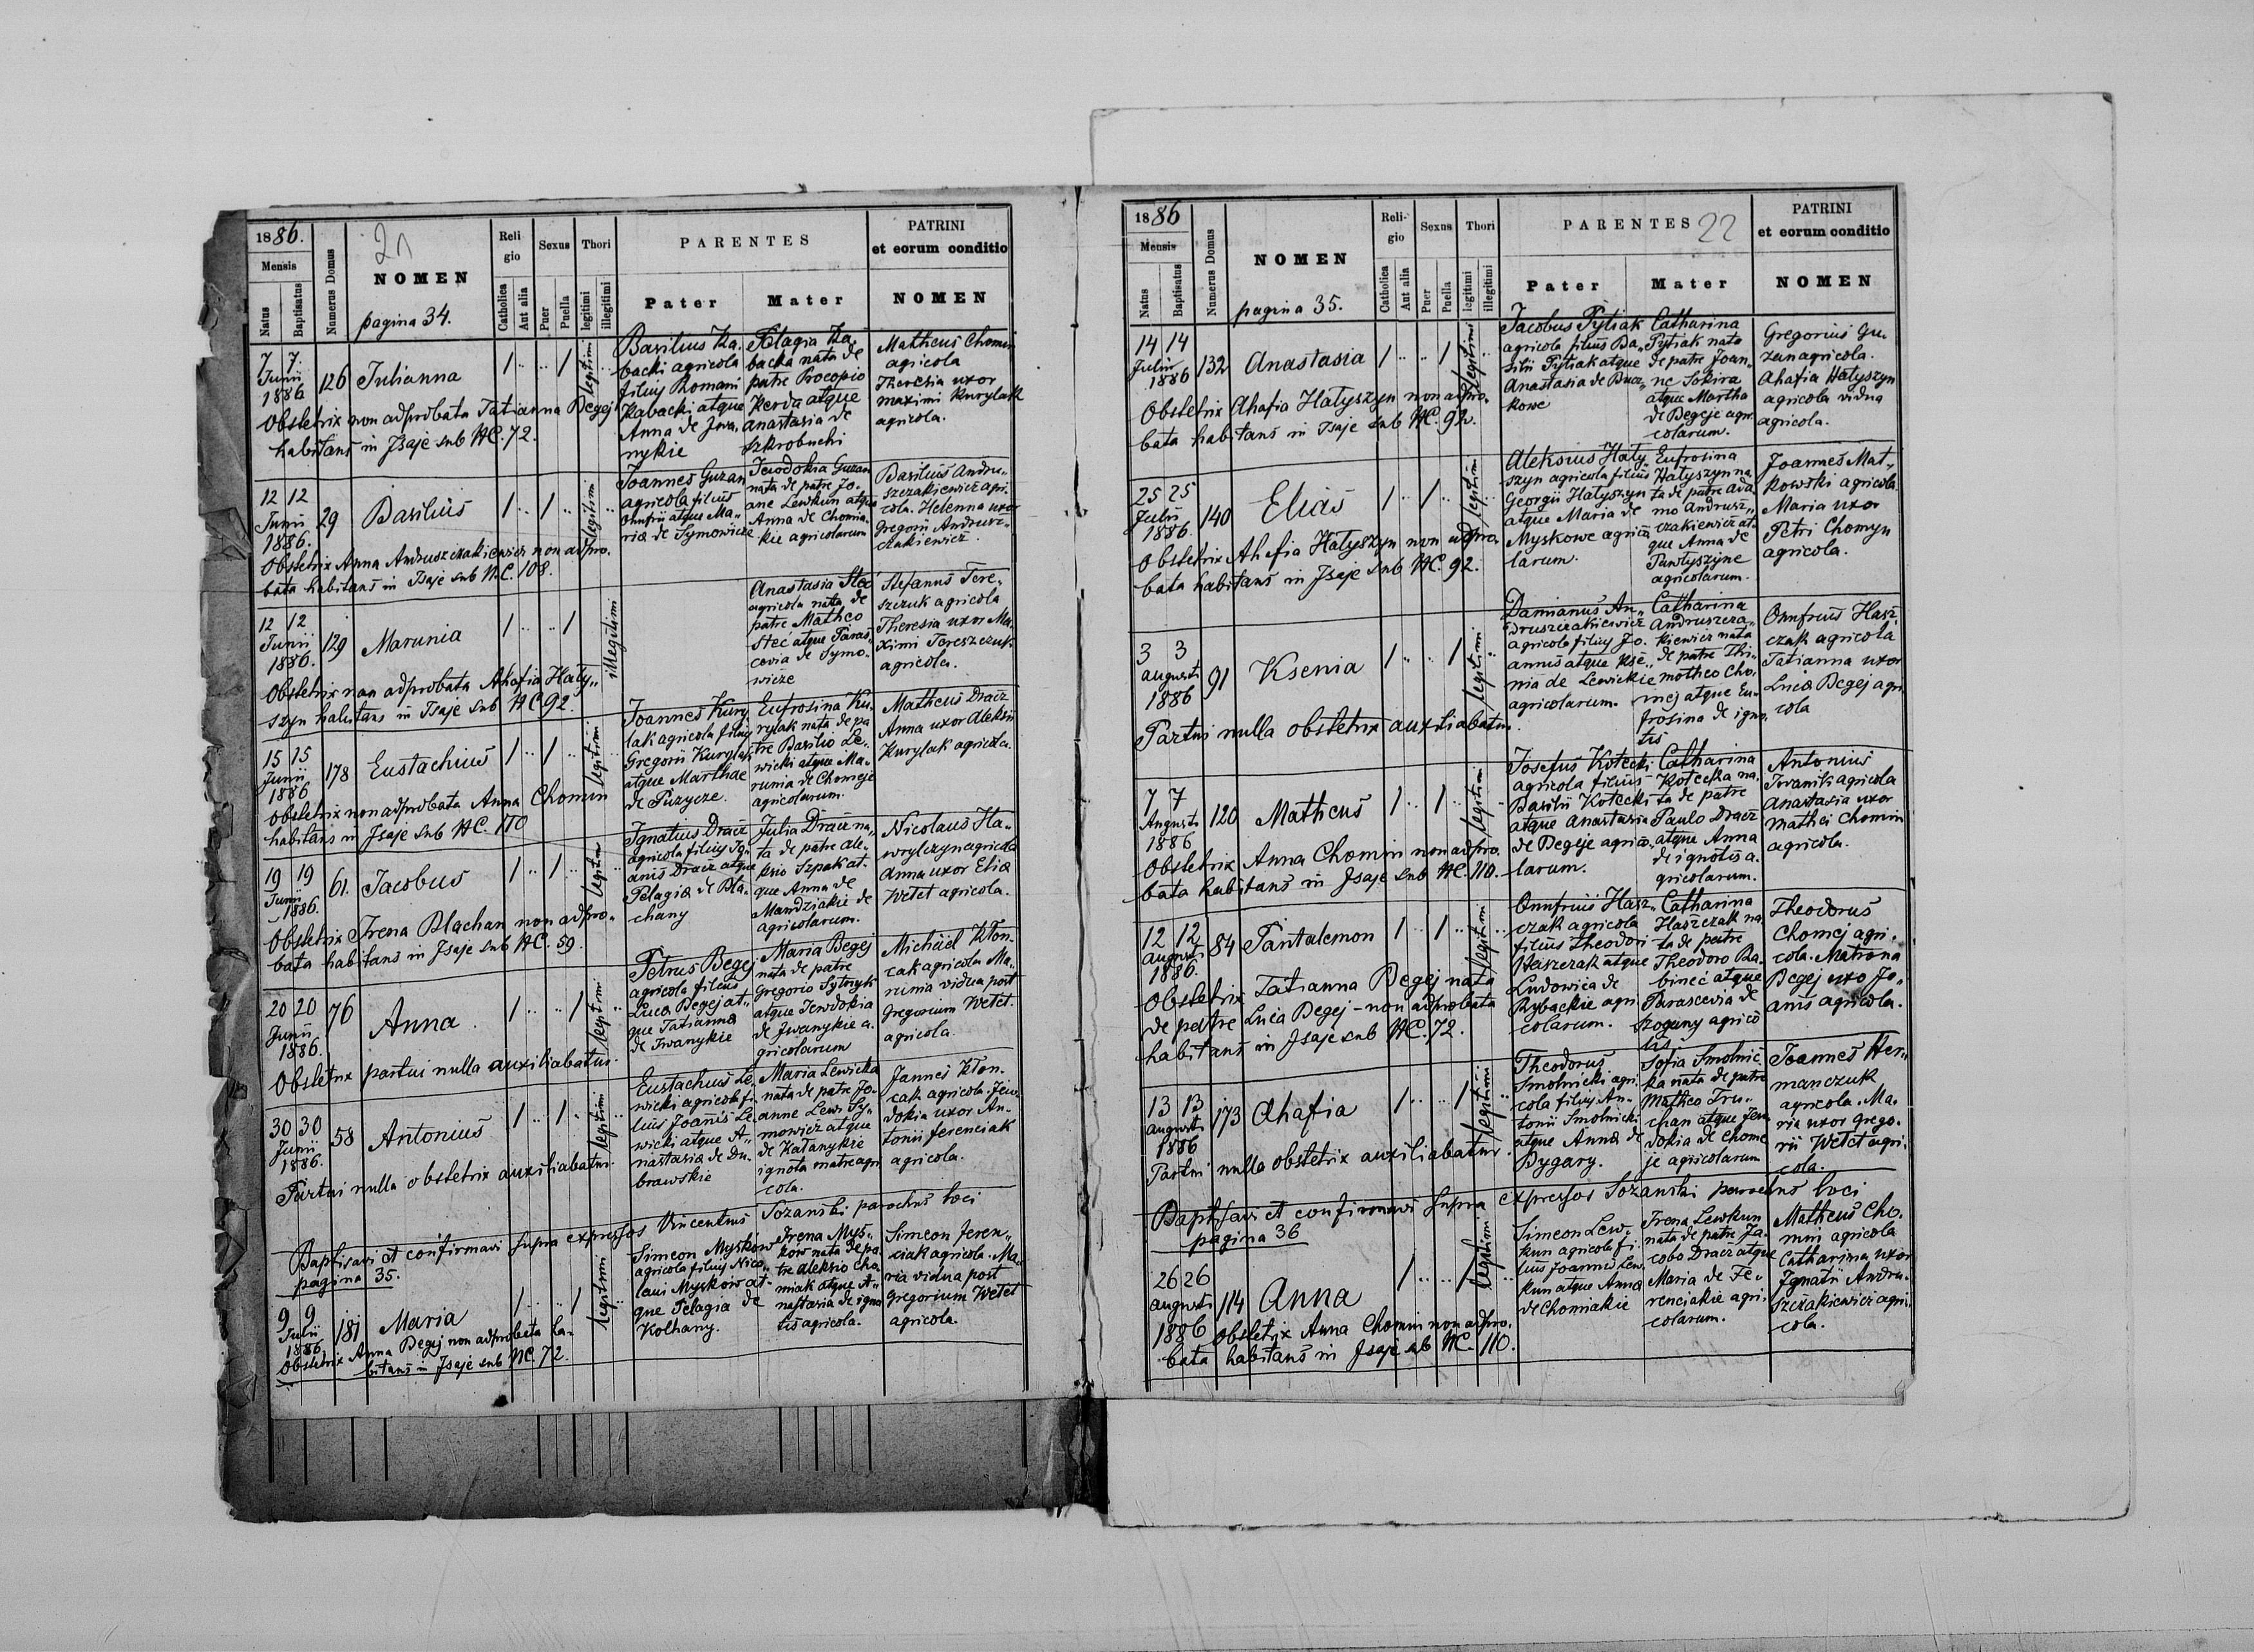 1886.
Mensis
Natus
Baptisatus
Numerus Domus
21
NOMEN
pagina 34.
Religio
Catholica
Aut alia
Sexus
Puer
Puella
Thori
legitimi
illegitimi
PARENTES
Pater
Mater
PATRINI
et eorum conditio
NOMEN
7 7
Junii
1886
126
Julianna
1 .. .. 1
legitimi
Basilius Ka-
backi agricola
filius Romani
Kabacki atque
Anna de Jwa-
nykie
Pelagia Ka-
backa nata de
patre Procopio
Kerda atque
Anastasia de
Szkrobuchi
Matheus Chomin
agricola
Theresia uxor
Maximi Kurylak
agricola.
Obstetrix non adprobata Tatianna Begej
habitans in Jsaje sub NC. 72.
12 12
Junii
1886.
29
Basilius
1 .. 1 ..
legitimi
Joannes Guzan
agricola filius
Onufrii atque Ma-
ria de Symowicze
Jewdokia Guzan
nata de patre Jo-
ane Lewkun atque
Anna de Chomia-
kie agricolarum
Basilius Andru-
szczakiewicz agri-
cola. Helenna uxor
Gregorii Andrusz-
czakiewicz.
Obstetrix Anna Andruszczakiewicz non adpro-
bata habitans in Jsaje sub NC. 108.
12 12
Junii
1886.
129
Marunia
1 .. .. 1
illegitimi
Anastasia Steć
agricola nata de
patre Matheo
Steć atque Paras-
cevia de Symo-
wicze
Stefanus Tere-
szczuk agricola
Theresia uxor Ma-
ximi Tereszczuk
agricola.
Obstetrix non adprobata Ahafia Haty-
szyn habitans in Jsaje sub NC 92.
15 15
Junii
1886
178
Eustachius
1 .. 1 ..
legitimi
Joannes Kury-
lak agricola filius
Gregorii Kurylak
atque Marthae
de Puzycze.
Eufrosina Ku-
rylak nata de pa
tre Basilio Le-
wicki atque Ma-
runia de Chomeje
agricolarum.
Matheus Dracz
Anna uxor Aleksii
Kurylak agricola.
Obstetrix non adprobata Anna Chomin
habitans in Jsaje sub NC. 110
19 19
Junii
1886.
61.
Jacobus
1 .. 1 ..
legitimi
Ignatius Dracz
agricola filius Jo-
anis Dracz atque
Pelagia de Bla-
chany
Julia Dracz na-
ta de patre Ale-
ksio Szpak at-
que Anna de
Mandziakie de
agricolarum.
Nicolaus Ha-
wrylczyn agricola
Anna uxor Elia
Wetet agricola.
Obstetrix Irena Blachan non adpro-
bata habitans in Jsaje sub NC. 59.
20 20
Junii
1886.
76
Anna
1 .. .. 1
legitimi
Petrus Begej
agricola filius
Luca Begej at-
que Tatianna
de Jwanykie
Maria Begej
nata de patre
Gregorio Sytnyk
atque Jewdokia
de Jwanykie a-
gricolarum
Michael Kton-
cak agricola Ma-
runia vidua post
Gregorium Wetet.
agricola.
Obstetrix partui nulla auxiliabatur.
30 30
Junii
1886.
58
Antonius
1 .. 1 ..
legitimi
Eustachius Le-
wicki agricola fi-
lius Joannis Le
wicki atque A-
nastasia de Du-
brawskie
Maria Lewicka
nata de patre Jo-
anne Lew Sy-
mowicz atque
de Katanykie
ignota matre agri
cola.
Jannes Kton-
cak agricola Jew-
dokia uxor An-
tonii ferenciak
agricola.
Partui nulla obstetrix auxiliabatur.
Baptisavi et confirmavi supra expressos Vincentius Sozanski parochus loci
pagina 35.
9 9
Julii
1886
181
Maria
1 .. .. 1
legitimi
Simeon Myskow
agricola filius Nico-
laui Myskow at-
que Pelagia de
Kolhany.
Irena Mys-
kow nata de pa-
tre Aleksio Cho-
miak atque A-
nastasia de igno
tis agricola.
Simeon Feren-
ciak agricola. Ma-
ria vidua post
Gregorium Wetet
agricola.
Obstetrix Anna Begej non adprobata ha-
bitans in Jsaje sub NC. 72.
1886
Mensis
Natus
Baptisatus
Numerus Domus
NOMEN
pagina 35.
Religio
Catholica
Aut alia
Sexus
Puer
Puella
Thori
legitimi
illegitimi
PARENTES 22
Pater
Mater
PATRINI
et eorum conditio
NOMEN
14 14
Julii
1886
132
Anastasia
1 .. .. 1
legitimi
Jacobus Pytiak
agricola filius Ba-
silii Pytiak atque
Anastasia de Bucz-
kowe
Catharina
Pytiak nata
de patre Joan-
ne Sokira
atque Martha
de Begeje agri-
colarum.
Gregorius Gu-
zan agricola.
Ahafia Hatyszyn
agricola vidua
agricola.
Obstetrix Ahafia Hatyszyn non adpro-
bata habitans in Jsaje sub NC. 92.
25 25
Julii
1886.
140
Elias
1 .. 1 ..
legitimi
Aleksius Haty
szyn agricola filius
Georgii Hatyszyn
atque Maria de
Myskowe agrico
larum.
Eufrosina
Hatyszyn na
ta de patre Ada-
mo Andrusz-
czakiewicz at-
que Anna de
Pawtyszyne
agricolarum.
Joannes Mat-
kowski agricola
Maria uxor
Petri Chomyn
agricola.
Obstetrix Ahafia Hatyszyn non adpro-
bata habitans in Jsaje sub NC. 92.
3 3
augusti
1886
91
Ksenia
1 .. .. 1
legitimi
Damianus An-
druszczakiewicz
agricola filius Jo-
annis atque Kse-
nia de Lewickie
agricolarum.
Catharina
Andruszcza-
kiewicz nata
de patre Thi-
motheo Cho-
mej atque Eu-
frosina de igno
tis
Onufrius Hasz-
czak agricola
Tatianna uxor
Luca Begej agri
cola
Partui nulla obstetrix auxiliabatur.
7 7
Augusti
1886
120
Matheus
1 .. 1 ..
legitimi
Josefus Kotecki
agricola filius
Basilii Kotecki
atque Anastasia
de Begeje agrico-
larum.
Catharina
Kotecka na-
ta de patre
Paulo Dracz
atque Anna
de ignotis a-
gricolarum.
Antonius
Iwanik agricola
Anastasia uxor
Mathei Chomin
agricola.
Obstetrix Anna Chomin non adpro-
bata habitans in Jsaje sub NC. 110.
12 12
augusti
1886.
84
Pantalemon
1 .. 1 ..
legitimi
Onufrius Hasz-
czak agricola
filius Theodori
Haszczak atque
Ludowica de
Rybackie agri
colarum.
Catharina
Haszczak na
ta de patre
Theodoro Ba-
binec atque
Parascevia de
Szoguny agrico
lis.
Theodorus
Chomej agri-
cola. Matrona
Begej uxo Jo-
anis agricola.
Obstetrix Tatianna Begej nata
de patre Luca Begej - non adprobata
habitans in Jsaje sub NC. 72.
13 13
augusti
1886
173
Ahafia
1 .. .. 1
legitimi
Theodorus
Smolnicki agri-
cola filius An-
tonii Smolnicki
atque Anna de
Bygary.
Sofia Smolnic
ka nata de patre
Matheo Tru-
chan atque Jew
dokia de Chome
je agricolarum
Joannes Her-
manczuk
agricola. Ma-
ria uxor Grego-
rii Wetet agri-
cola.
Partui nulla obstetrix auxiliabatur.
Baptisavi et confirmavi supra expressos Sozanski parochus loci
pagina 36
26 26
augusti
1886
114
Anna
1 .. .. 1
legitimi
Simeon Lew-
kun agricola fi-
lius Joannis Lew-
kun atque Anna
de Chomiakie
Irena Lewkun
nata de patre Ja-
cobo Dracz atque
Maria de Fe-
renciakie agri-
colarum.
Matheus Cho-
min agricola
Catharina uxor
Ignatii Andru-
szczakiewicz agri-
cola.
Obstetrix Anna Chomin non adpro-
bata habitans in Jsaje sub NC. 110.